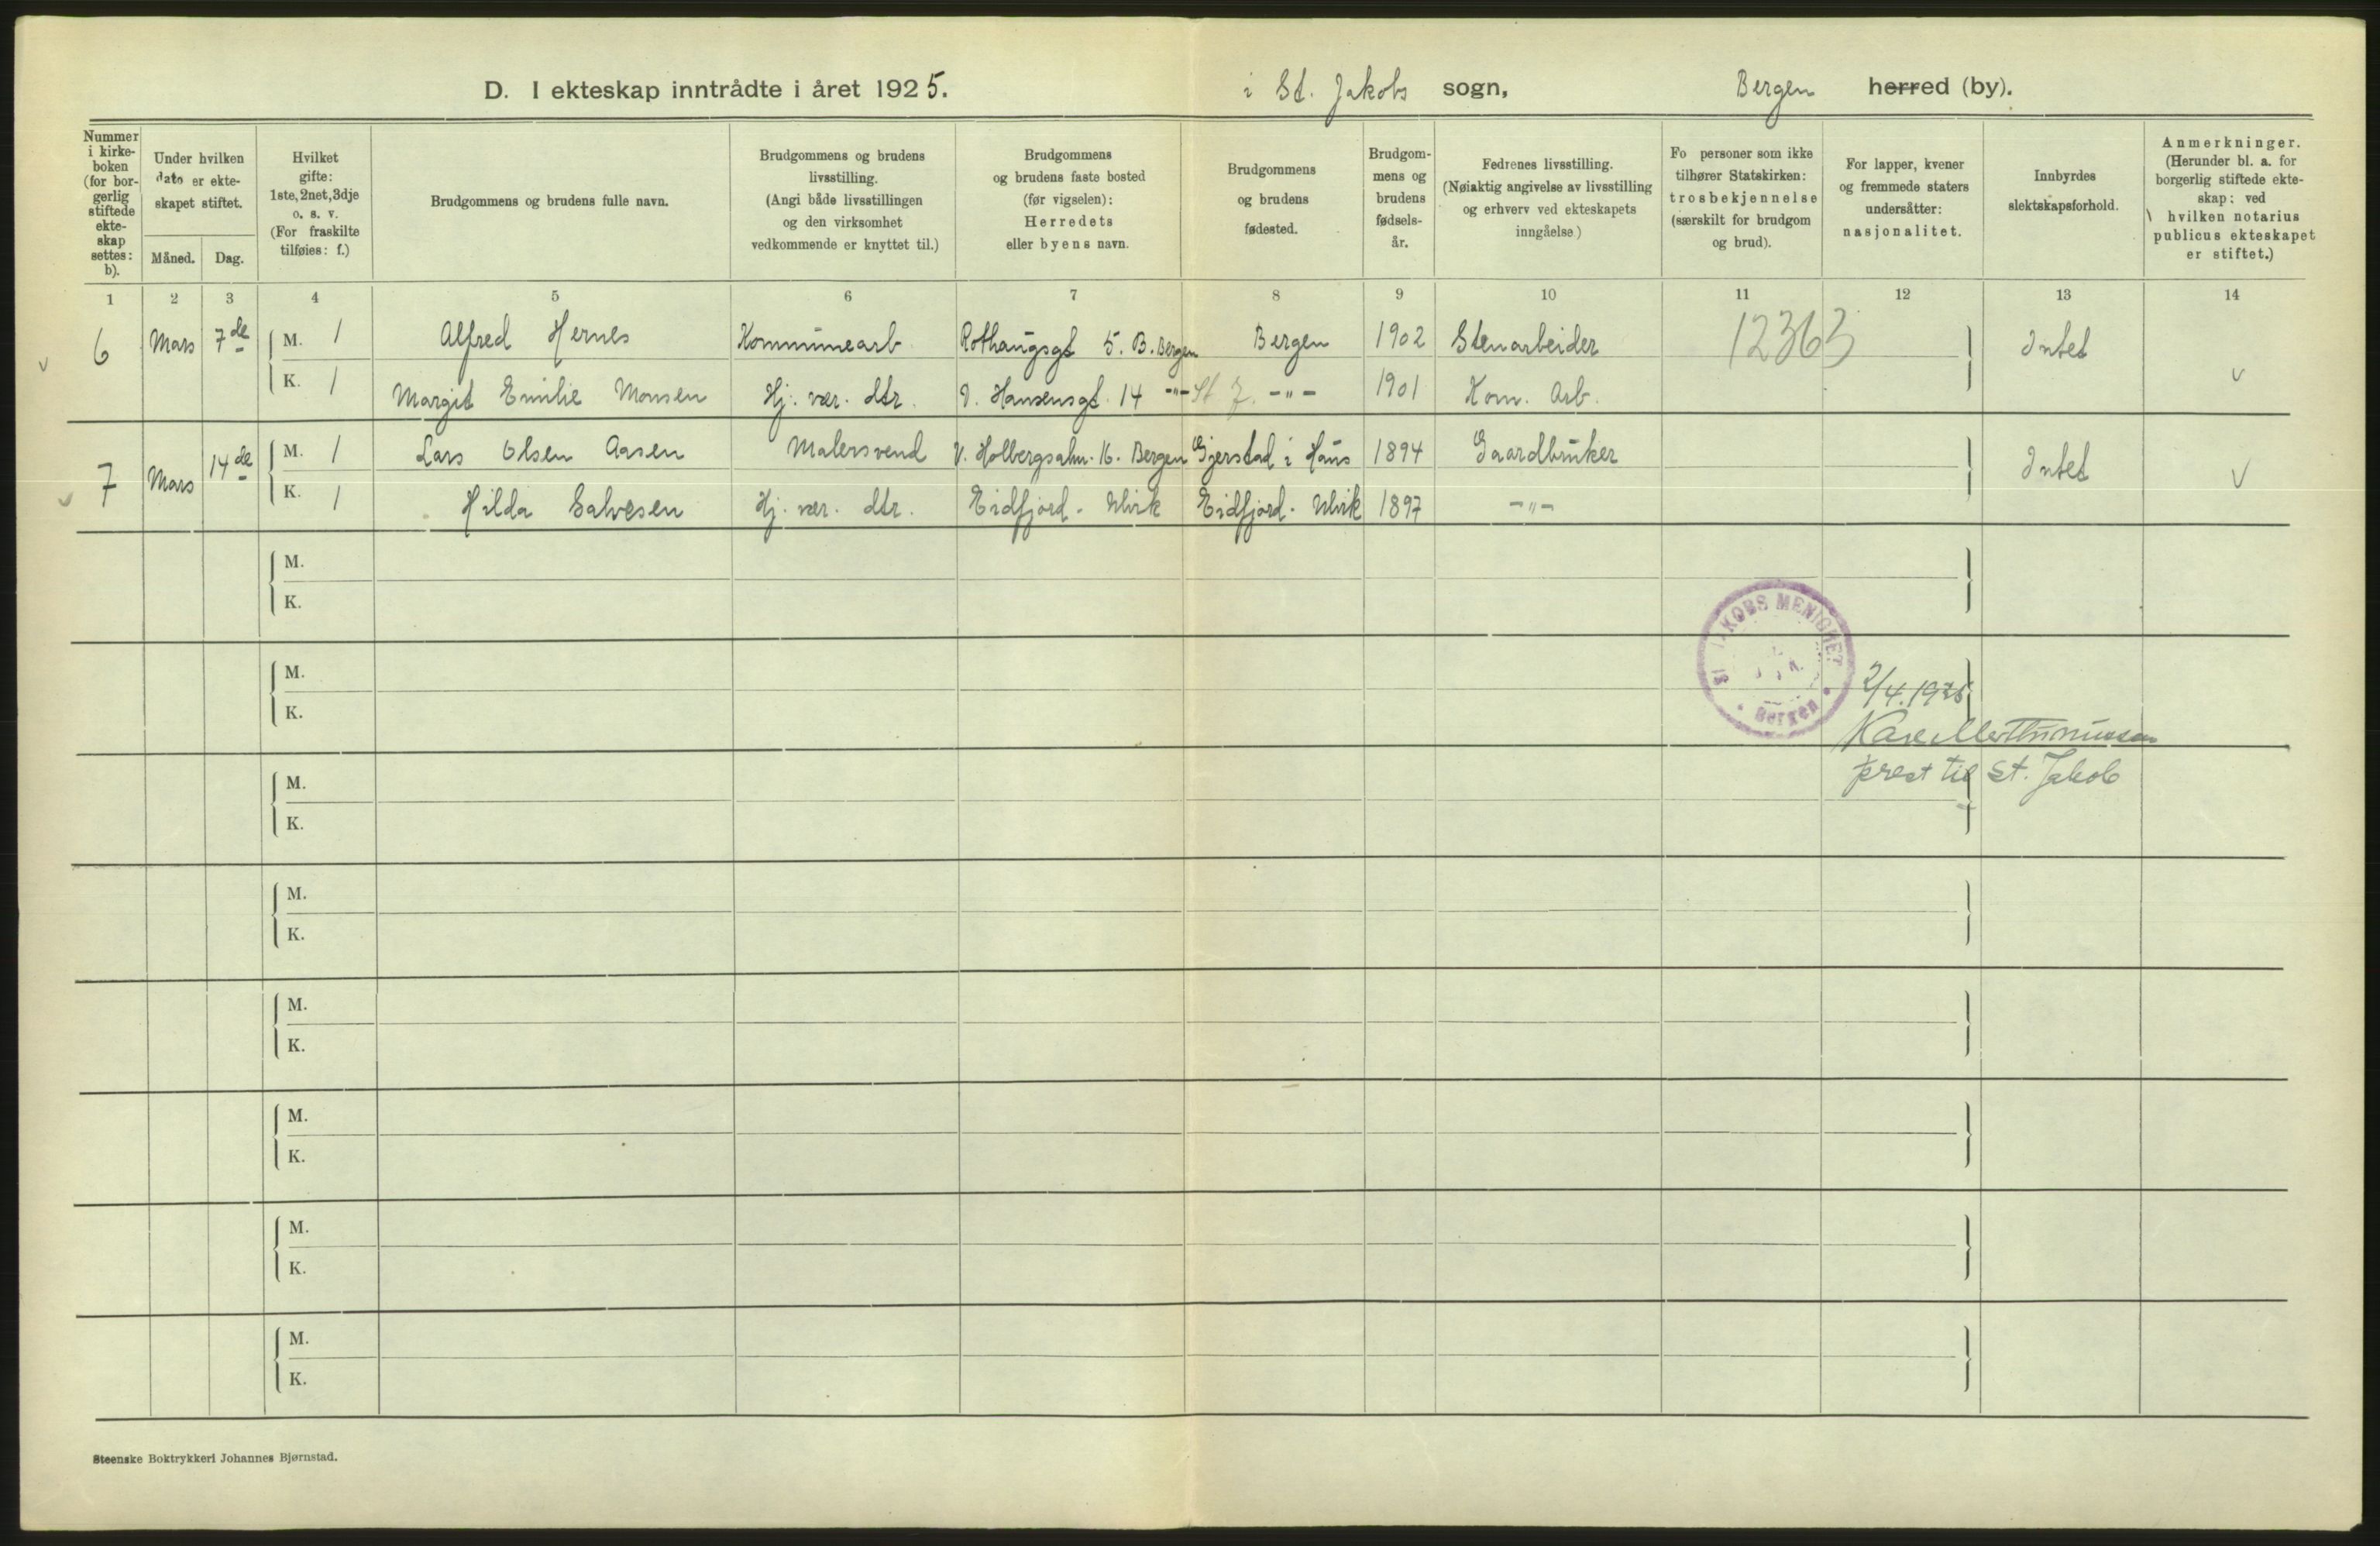 D. I ekteskap inntrådte i året 1925. i St. Jakobs sogn, Bergen herred (by).
Nummer i kirke-boken (for bor-gerlig stiftede ekte-skap settes: b).
Under hvilken dato er ekte-skapet stiftet.
Måned. Dag.
Hvilket gifte: 1ste, 2net, 3dje o. s. v. (For fraskilte tilføies: f.)
Brudgommens og brudens fulle navn.
Brudgommens og brudens livsstilling. (Angi både livsstillingen og den virksomhet vedkommende er knyttet til.)
Brudgommens og brudens faste bosted (før vigselen): Herredets eller byens navn.
Brudgommens og brudens fødested.
Brudgom-mens og brudens fødsels-år.
Fedrenes livsstilling. (Nøiaktig angivelse av livsstilling og erhverv ved ekteskapets inngåelse)
Fo personer som ikke tilhører Statskirken: trosbekjennelse (særskilt for brudgom og brud).
For lapper, kvener og fremmede staters undersåtter: nasjonalitet.
Innbyrdes slektskapsforhold.
Anmerkninger. (Herunder bl. a. for borgerlig stiftede ekte-skap: ved hvilken notarius publicus ekteskapet er stiftet.)
1 2 3 4 5 6 7 8 9 10 11 12 13 14
v 6 Mars 7de M. 1 Alfred Hernes Kommunearb. Rothaugsgt 5. B. Bergen Bergen 1902 Stenarbeider 12363 Intet v
K. 1 Margit Emilie Monsen Hj. vær. dtr. V. Hansensgt. 14 -"- St J. -"- 1901 Kom. Arb.
v 7 Mars 14de M. 1 Lars Olsen Aasen Malersvend V. Holbergsalm. 16. Bergen Gjerstad i Haus 1894 Gaardbruker Intet v
K. 1 Hilda Salvesen Hj. vær. dtr. Eidfjord - Ulvik Eidfjord - Ulvik 1897 -"-
M.
K.
M.
K.
ST. JAKOBS MENIGHET
Bergen
2/4.1925
prest til St. Jakob
M.
K.
M.
K.
M.
K.
M.
K.
M.
K.
M.
K.
Steenske Boktrykkeri Johannes Bjørnstad.